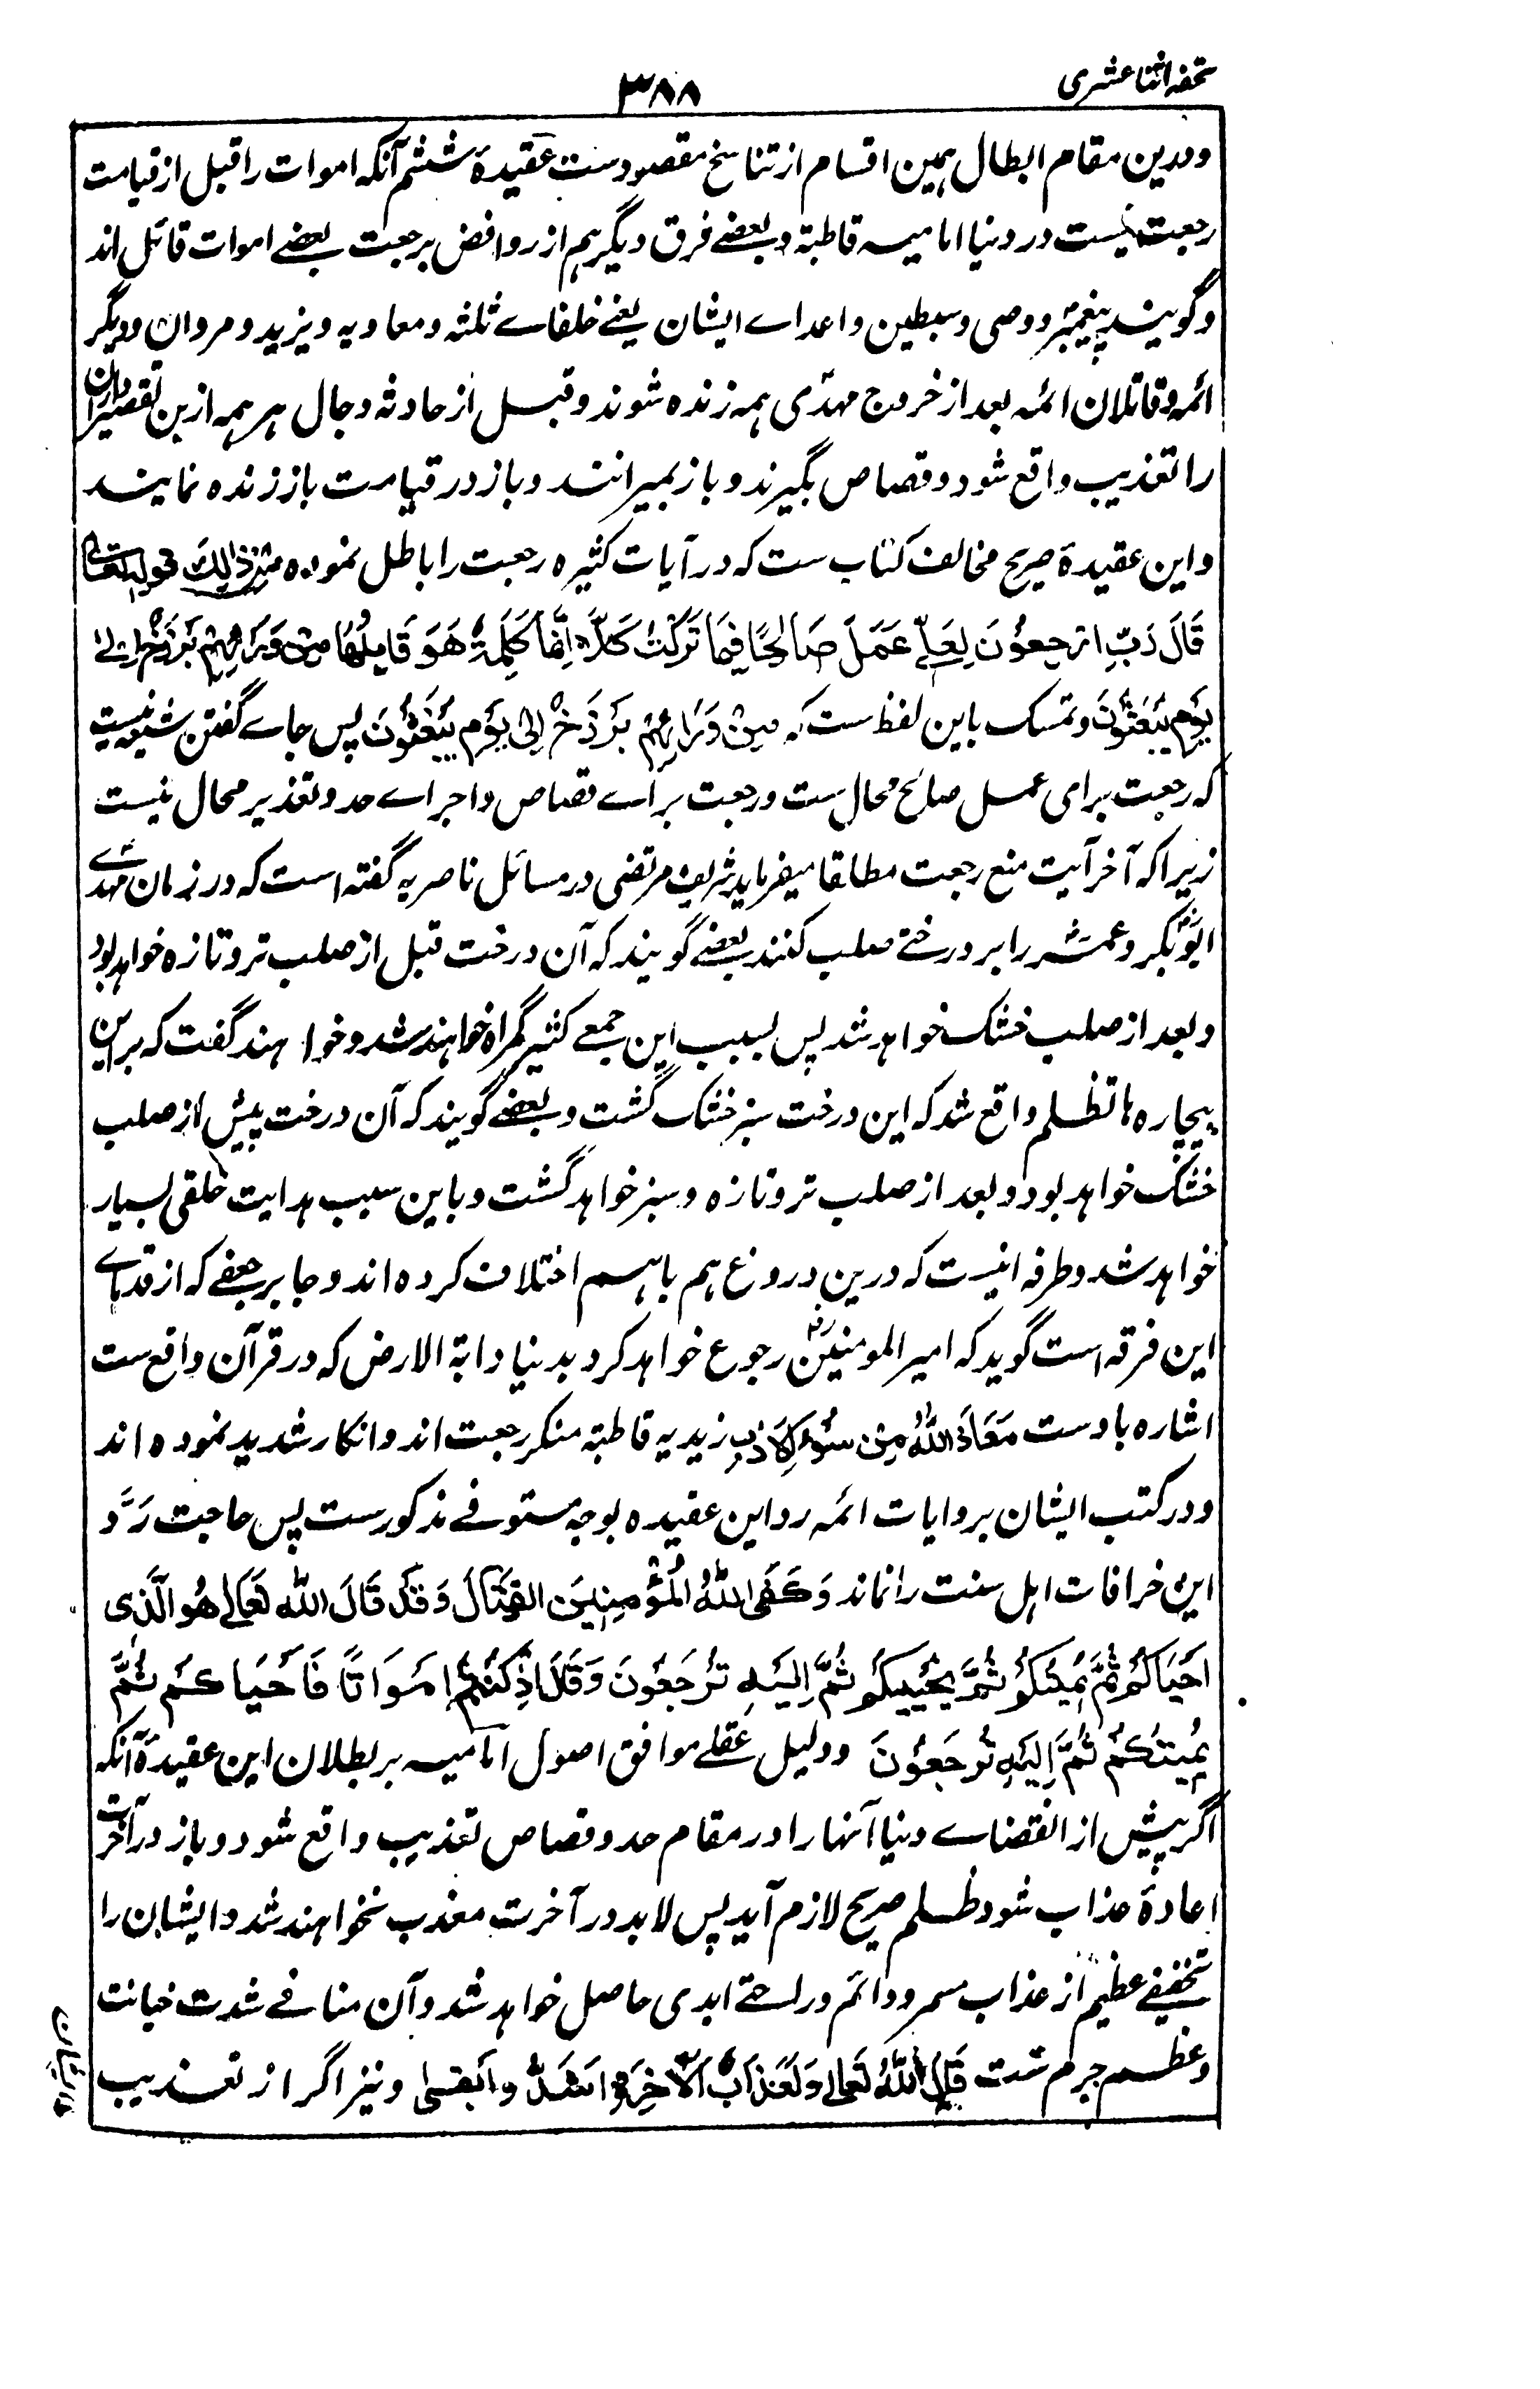 تحفه اثنا عشری
۳۸۸
ودرین مقام ابطال همین اقسام از تناسخ مقصودست عقیدهٔ ششم آنکه اموات را قبل از قیامت
رجعت نیست در دنیا امامیه قاطبة وبعضے فرق دیگر هم از روافض برجعت بعضے اموات قائل اند
وگویند پیغمبر ووصی وسبطین واعداے ایشان یعنے خلفاے ثلثه ومعاویه ویزید ومروان ودیگر
ائمه وقاتلان ائمه بعد از خروج مهدی همه زنده شوند وقبل از حادثه دجال هر همه ازین تقصیرداران
را تعذیب واقع شود وقصاص بگیرند وباز بمیرانند وباز در قیامت باز زنده نمایند
واین عقیدهٔ صریح مخالف کتاب ست که در آیات کثیره رجعت را باطل نموده من ذالِكَ قوله تعالی
قَالَ رَبِّ ارْجِعُوْنَ لِعَلّے عَمَلَ صَالِحًا فِيْمَا تَرَكْتُ كَلَّا اِنَّهَا كَلِمَةٌ هَوَ قَايِلُهَا مِنْ وَرَايِهِمْ بَرْزَخٌ اِلٰے
يَوْمِ يُبْعَثُوْنَ وتمسک باین لفظ ست که مِنْ وَرَايِهِمْ بَرْزَخٌ اِلٰی يَوْمِ يُبْعَثُوْنَ پس جاے گفتن شیعه نیست
که رجعت برای عمل صالح محال ست ورجعت براے قصاص واجراے حد وتعذیر محال نیست
زیرا که آخر آیت منع رجعت مطلقا میفرماید شریف مرتضی در مسائل ناصریه گفته است که در زمان مهدے
ابوبکر وعمر را بر درختے صلب کنند بعضے گویند که آن درخت قبل از صلب تر وتازه خواهد بود
وبعد از صلب خشک خواهد شد پس بسبب این جمعے کثیر گمراه خواهند شد وخوا هند گفت که برین
بیچاره ها تظلم واقع شد که این درخت سبز خشک گشت وبعضے گویند که آن درخت پیش از صلب
خشک خواهد بود وبعد از صلب تر وتازه وسبز خواهد گشت وباین سبب هدایت خلقی بسیار
خواهد شد وطرفه اینست که درین دروغ هم باهم اختلاف کرده اند وجابر جعفے که از قدماے
این فرقه است گوید که امیر المومنین رض رجوع خواهد کرد بدنیا دابة الارض که در قرآن واقع ست
اشاره باوست مَعَاذَ اللهُ مِنْ سُوْءِ الْاَدَبِ زیدیه قاطبة منکر رجعت اند وانکار شدید نموده اند
ودر کتب ایشان بروایات ائمه رد این عقیده بوجه مستوفے مذکورست پس حاجت رَدّ
این خرافات اهل سنت را نماند وَكَفَى اللهُ الْمُؤْمِنِيْنَ الْقِتَالَ وَقَدْ قَالَ اللهُ تَعَالٰے هُوَ الَّذِی
اَحْيَاكُمْ ثُمَّ يُمِيْتُكُمْ ثُمَّ يُحْيِيْكُمْ ثُمَّ اِلَيْهِ تُرْجَعُوْنَ وَقَالَ اِذْ كُنْتُمْ اَمْوَاتًا فَاَحْيَاكُمْ ثُمَّ
يُمِيْتُكُمْ ثُمَّ اِلَيْهِ تُرْجَعُوْنَ ودلیل عقلے موافق اصول امامیه بر بطلان این عقیدهٔ آنکه
اگر پیش از انقضاے دنیا آنها را در مقام حد وقصاص تعذیب واقع شود وباز در آخرت
اعادهٔ عذاب شود ظلم صریح لازم آید پس لابد در آخرت معذب نخواهند شد وایشان را
تخفیفے عظیم از عذاب سرمد ودائم وراحتے ابدی حاصل خواهد شد وآن منافے شدت خیانت
وعظم جرم ست قَالَ اللهُ تَعَالٰی وَلَعَذَابُ الْاٰخِرَةِ اَشَدُّ وَاَبْقٰی ونیز اگر از تعذیب